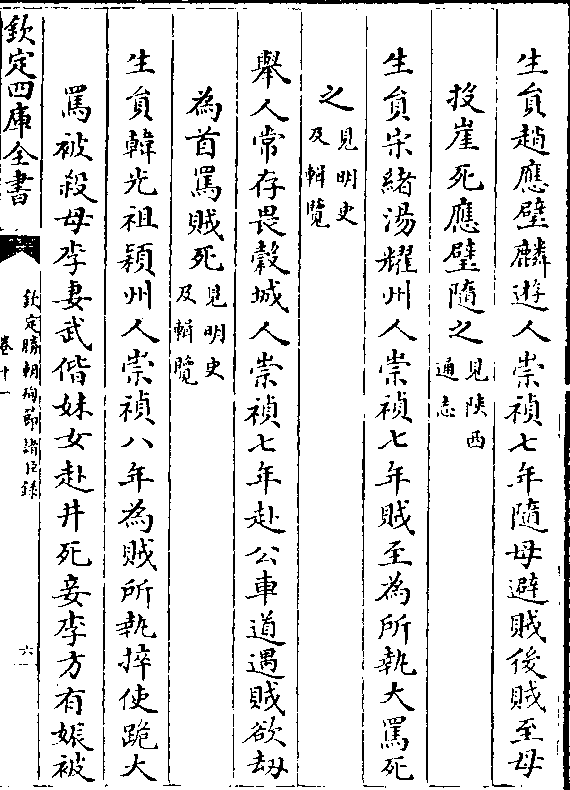 生員趙應壁麟遊人崇禎七年隨母避賊後賊至母
投崖死應璧隨之見陜西通志
生員宋緒湯耀州人崇禎七年賊至為所執大罵死
之見明史及輯覽
舉人常存畏榖城人崇禎七年赴公車道遇賊欲刼
為首罵賊死見明史及輯覽
生員韓光祖潁州人崇禎八年為賊所執捽使跪大
罵被殺母李妻武偕妹女赴井死妾李方有娠被
欽定四庫全書
欽定勝朝殉節諸臣錄
卷十一
六一